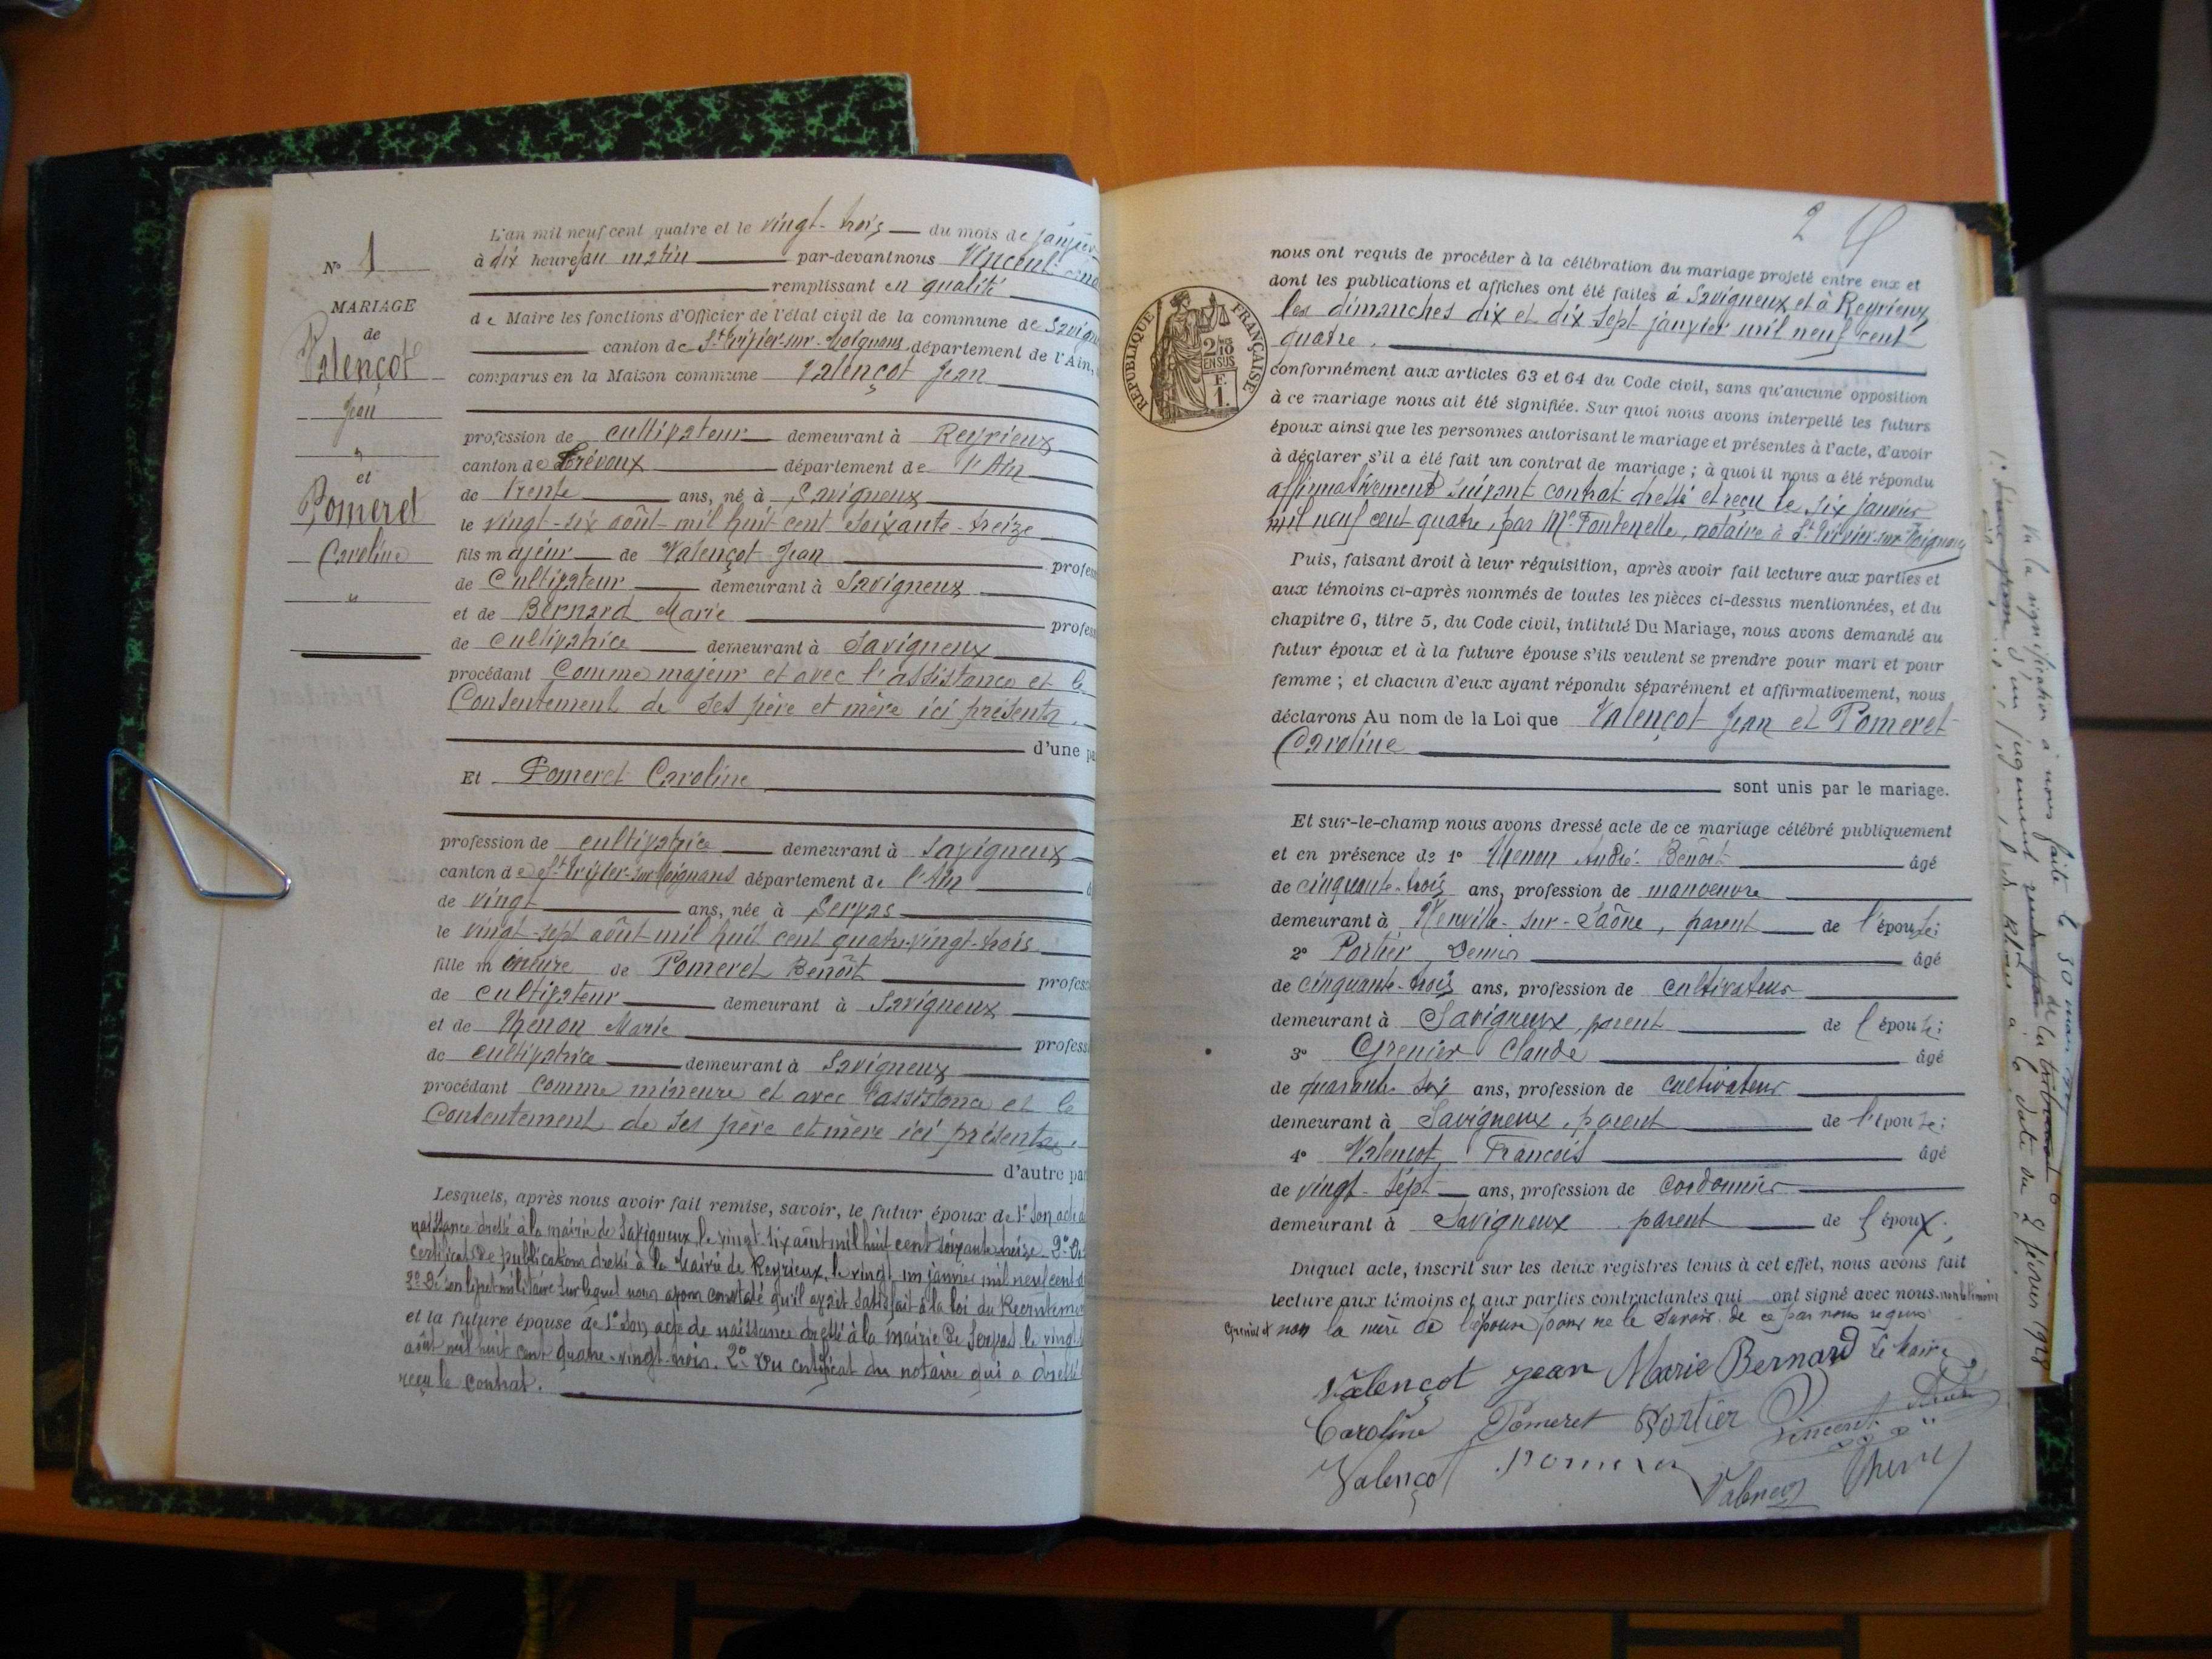 N° 1
MARIAGE
de
Valençot
Jean
"
et
Pomeret
Caroline
"
L'an mil neuf cent quatre et le vingt-trois du mois de janvier
à dix heures du matin par-devant nous Vincent
remplissant en qualité
de Maire les fonctions d'Officier de l'état civil de la commune de Savign
canton de St Trivier-sur-Moignans, département de l'Ain,
comparus en la Maison commune Valençot Jean
profession de cultivateur demeurant à Reyrieux
canton de Trévoux département de l'Ain
de trente ans, né à Savigneux
le vingt-six août mil huit cent soixante-treize
fils majeur de Valençot Jean profes
de Cultivateur demeurant à Savigneux
et de Bernard Marie profes
de cultivatrice demeurant à Savigneux
procédant Comme majeur et avec l'assistance et le
Consentement de ses père et mère ici présents.
d'une pa
Et Pomeret Caroline
profession de cultivatrice demeurant à Savigneux
canton de St Trivier-sur-Moignans département de l'Ain
de vingt ans, née à Servas
le vingt-sept août mil huit cent quatre-vingt-trois
fille mineure de Pomeret Benoît profess
de cultivateur demeurant à Savigneux
et de Thenon Marie profess
de cultivatrice demeurant à Savigneux
procédant comme mineure et avec l'assistance et le
Consentement de ses père et mère ici présents.
d'autre pa
Lesquels, après nous avoir fait remise, savoir, le futur époux de 1° Son acte d
naissance dressé à la mairie de Savigneux le vingt-six août mil huit cent soixante treize. 2° Du
certificat de publications dressé à la Mairie de Reyrieux, le vingt un janvier mil neuf cent
3° De son livret militaire sur lequel nous avons constaté qu'il avait satisfait à la loi du Recrutemen
et la future épouse de 1° Son acte de naissance dressé à la mairie de Servas le vingt
août mil huit cent quatre-vingt-trois. 2° Du certificat du notaire qui a dressé
reçu le contrat.
2
nous ont requis de procéder à la célébration du mariage projeté entre eux et
dont les publications et affiches ont été faites à Savigneux et à Reyrieux
les dimanches dix et dix sept janvier mil neuf cent
quatre.
RÉPUBLIQUE FRANÇAISE
2/10
EN SUS
F.
1.
conformément aux articles 63 et 64 du Code civil, sans qu'aucune opposition
à ce mariage nous ait été signifiée. Sur quoi nous avons interpellé les futurs
époux ainsi que les personnes autorisant le mariage et présentes à l'acte, d'avoir
à déclarer s'il a été fait un contrat de mariage ; à quoi il nous a été répondu
affirmativement suivant contrat dressé et reçu le six janvier
mil neuf cent quatre, par Me Fontenelle, notaire à St Trivier-sur-Moignans
Puis, faisant droit à leur réquisition, après avoir fait lecture aux parties et
aux témoins ci-après nommés de toutes les pièces ci-dessus mentionnées, et du
chapitre 6, titre 5, du Code civil, intitulé Du Mariage, nous avons demandé au
futur époux et à la future épouse s'ils veulent se prendre pour mari et pour
femme ; et chacun d'eux ayant répondu séparément et affirmativement, nous
déclarons Au nom de la Loi que Valençot Jean et Pomeret
Caroline
sont unis par le mariage.
Et sur-le-champ nous avons dressé acte de ce mariage célébré publiquement
et en présence de 1° Thenon André-Benoît âgé
de cinquante-trois ans, profession de manoeuvre
demeurant à Neuville-sur-Saône, parent de l'épouse;
2° Portier Denis âgé
de cinquante-trois ans, profession de cultivateur
demeurant à Savigneux, parent de l'épouse;
3° Grenier Claude âgé
de quarante-six ans, profession de cultivateur
demeurant à Savigneux, parent de l'épouse;
4° Valençot François âgé
de vingt-sept ans, profession de Cordonnier
demeurant à Savigneux parent de l'époux;
Duquel acte, inscrit sur les deux registres tenus à cet effet, nous avons fait
lecture aux témoins et aux parties contractantes qui ont signé avec nous. non le témoin
Grenier et non la mère de l'épouse pour ne le savoir. de ce par nous requis
Valençot Jean Marie Bernard Le Maire
Caroline Pomeret Portier Vincent
Valençot Pomeret Valençot
Vu la signification à nous faite le 30 mars
jugement de la
à la date du 2 février 1928